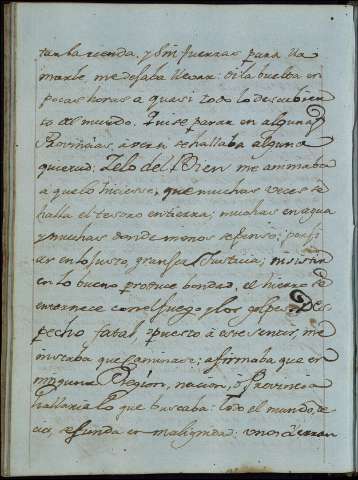 tarba rienda. y Sin fuerzas para lla
marle, me dejaba llevar: di la buelta en
pocas horas a quasi todo lo descubier
to del mundo. Quise parar en algunas
Provincias, á ver si se hallaba alguna
quietud: Zelo del Bien me animaba
a que lo hiciesse; que muchas veces se
halla el tesoro en tierra; muchas en agua
y muchas donde menos se pensó; porfi
ar en lo justo, gran sea Justicia; insistir
en lo bueno produce bondad, el hierro se
enternece con el fuego y los golpes. Des
pecho fatal, opuesto á este sentir, me
instaba que caminase; afirmaba que en
ninguna Region, nacion, ó Provincia
hallaria lo que buscaba: todo el mundo, de
cia, se funda en malignidad: unos á errar